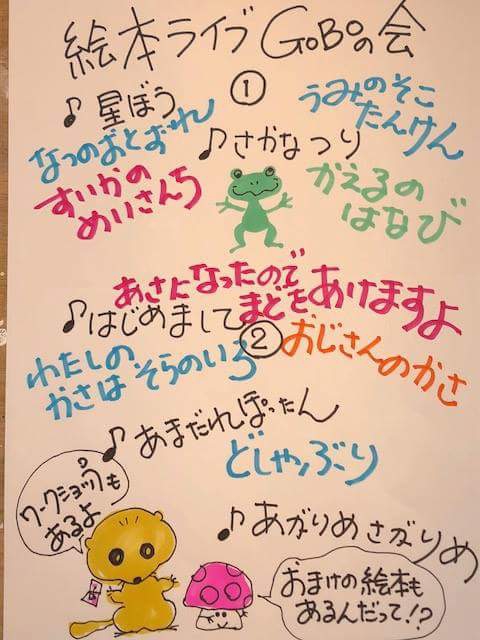 絵本ライブ GoBoの会
①
♪星ぼう
うみのそこ
たんけん
なつのおとずれ
♪さかなつり
すいかの
めいさんち
かえるの
はなび
あさになったので
まどをあけますよ
♪はじめまして
②
おじさんのかさ
わたしの
かさは そらのいろ
♪あまだれぽったん
どしゃぶり
ワークショップも
あるよ
♪あがりめ さがりめ
おまけの絵本も
あるんだって!?